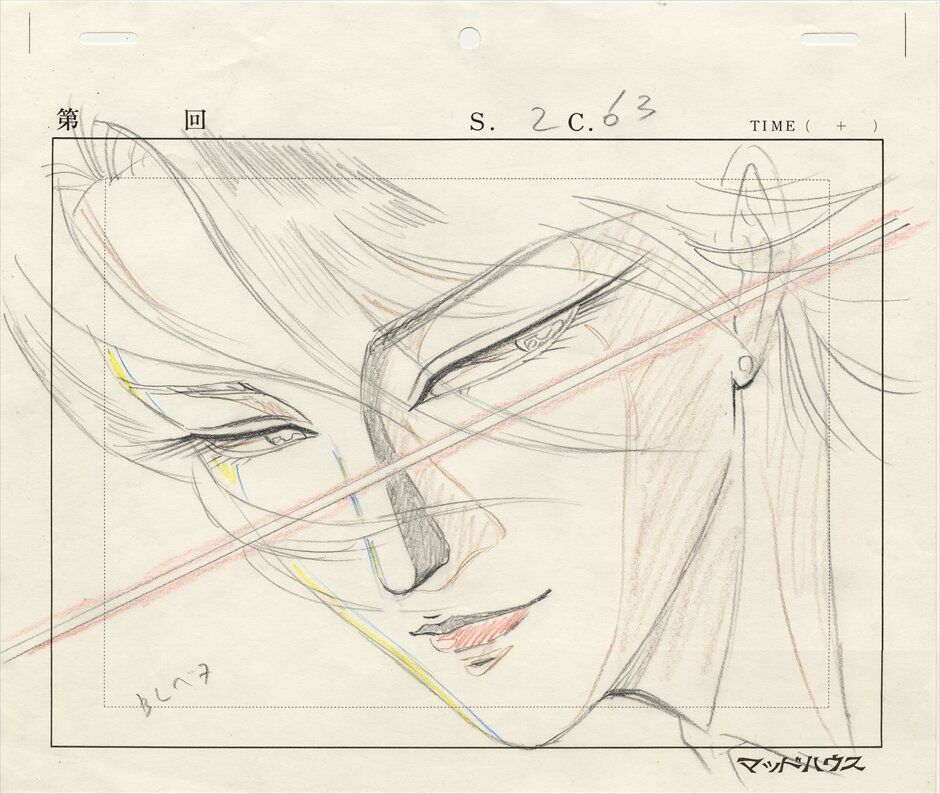 第 回 S. 2 C. 63 TIME ( + )
BLベタ
マッドハウス